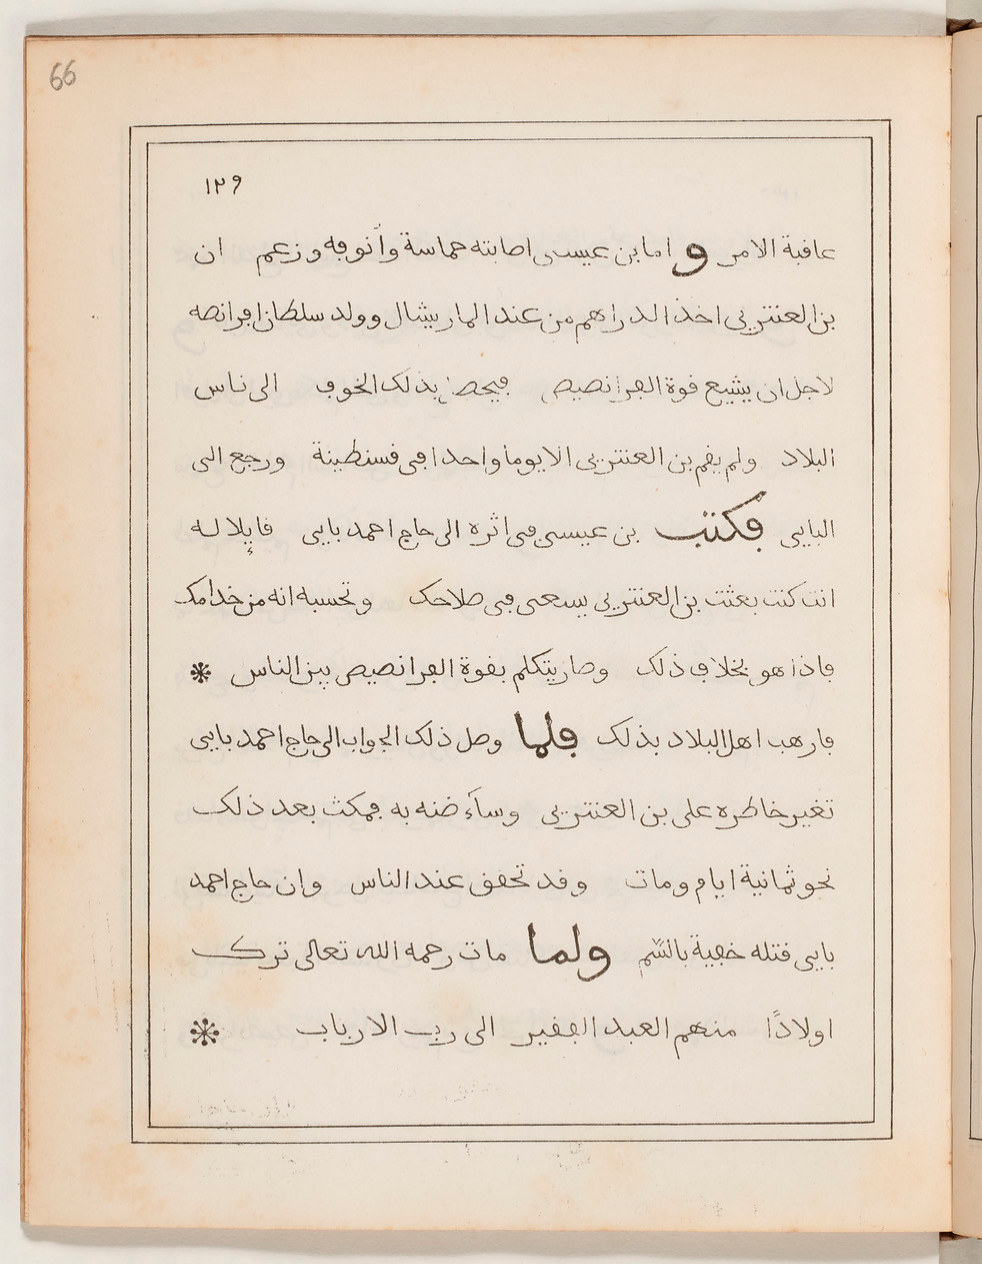 66
١٢٩
عاقبة الامر و اما بن عيسى اصابته حماسة وأنوفه وزعم ان
بن العنتريى اخذ الدراهم من عند الماريشال وولد سلطان افرانصه
لاجل ان يشيع قوة الفرانصيص فيحصل بذلك الخوف الى ناس
البلاد ولم يقم بن العنتريى الا يوما واحدا فى قسنطينة ورجع الى
البايى فكتب بن عيسى فى اثره الى حاج احمد بايى قايلا له
انت كنت بعثت بن العنتريى يسعى فى صلاحك وتحسبه انه من خدامك
فاذا هو بخلاف ذلك وصار يتكلم بقوة الفرانصيص بين الناس *
فارهب اهل البلاد بذلك فلما وصل ذلك الجواب الى حاج احمد بايى
تغير خاطره على بن العنتريى وسآء ضنه به فمكث بعد ذلك
نحو ثمانية ايام ومات وقد تحقق عند الناس وان حاج احمد
بايى قتله خفية بالسّم ولما مات رحمه الله تعالى ترك
اولادًا منهم العبد الفقير الى رب الارباب *